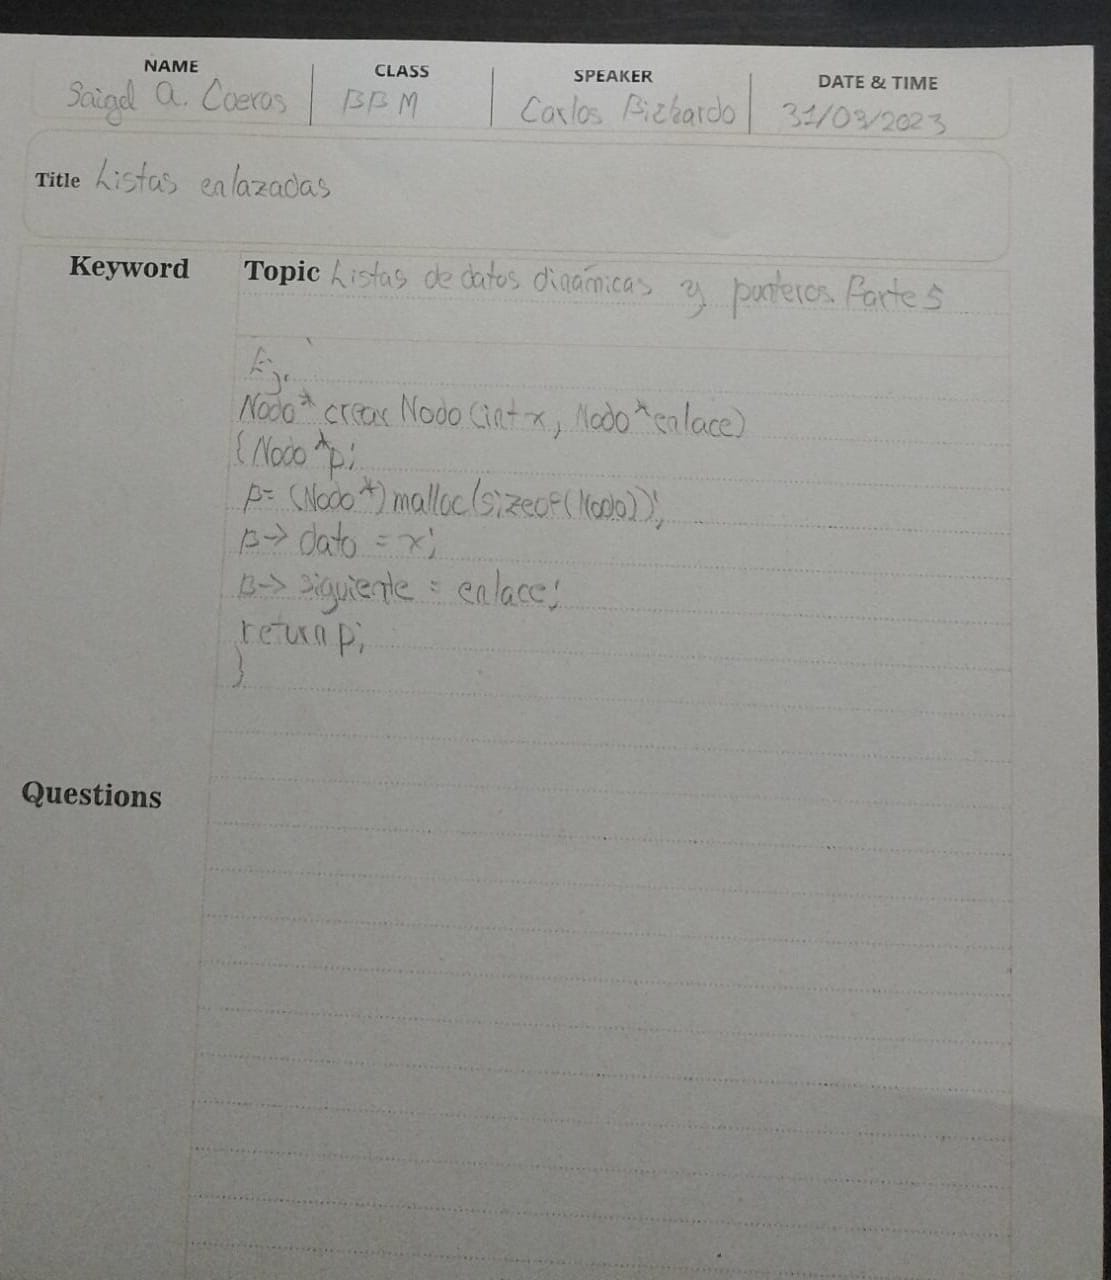 NAME CLASS SPEAKER DATE & TIME
Saigel A. Coeros BBM Carlos Pichardo 31/03/2023
Title Listas enlazadas
Keyword Topic Listas de datos dinámicas y punteros. Parte 5
Ej.
Nodo* crear Nodo (int x, Nodo *enlace)
{ Nodo *p;
p= (Nodo *) malloc(sizeof(Nodo));
p-> dato = x;
p-> siguiente = enlace;
return p;
}
Questions